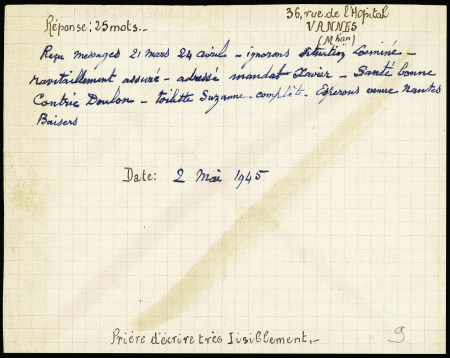 36, rue de l'Hôpital
Réponse: 25 mots._
VANNES
(Mban)
Reçu messages 21 mars 24 avril _ ignorons situation Locminé _
ravitaillement assuré _ adressé mandat Xavier _ Santé bonne
Contrie Doulon _ toilette Suzanne complète. Espérons venue Nantes
Baisers
Date: 2 Mai 1945
Prière d'écrire très lisiblement._
9